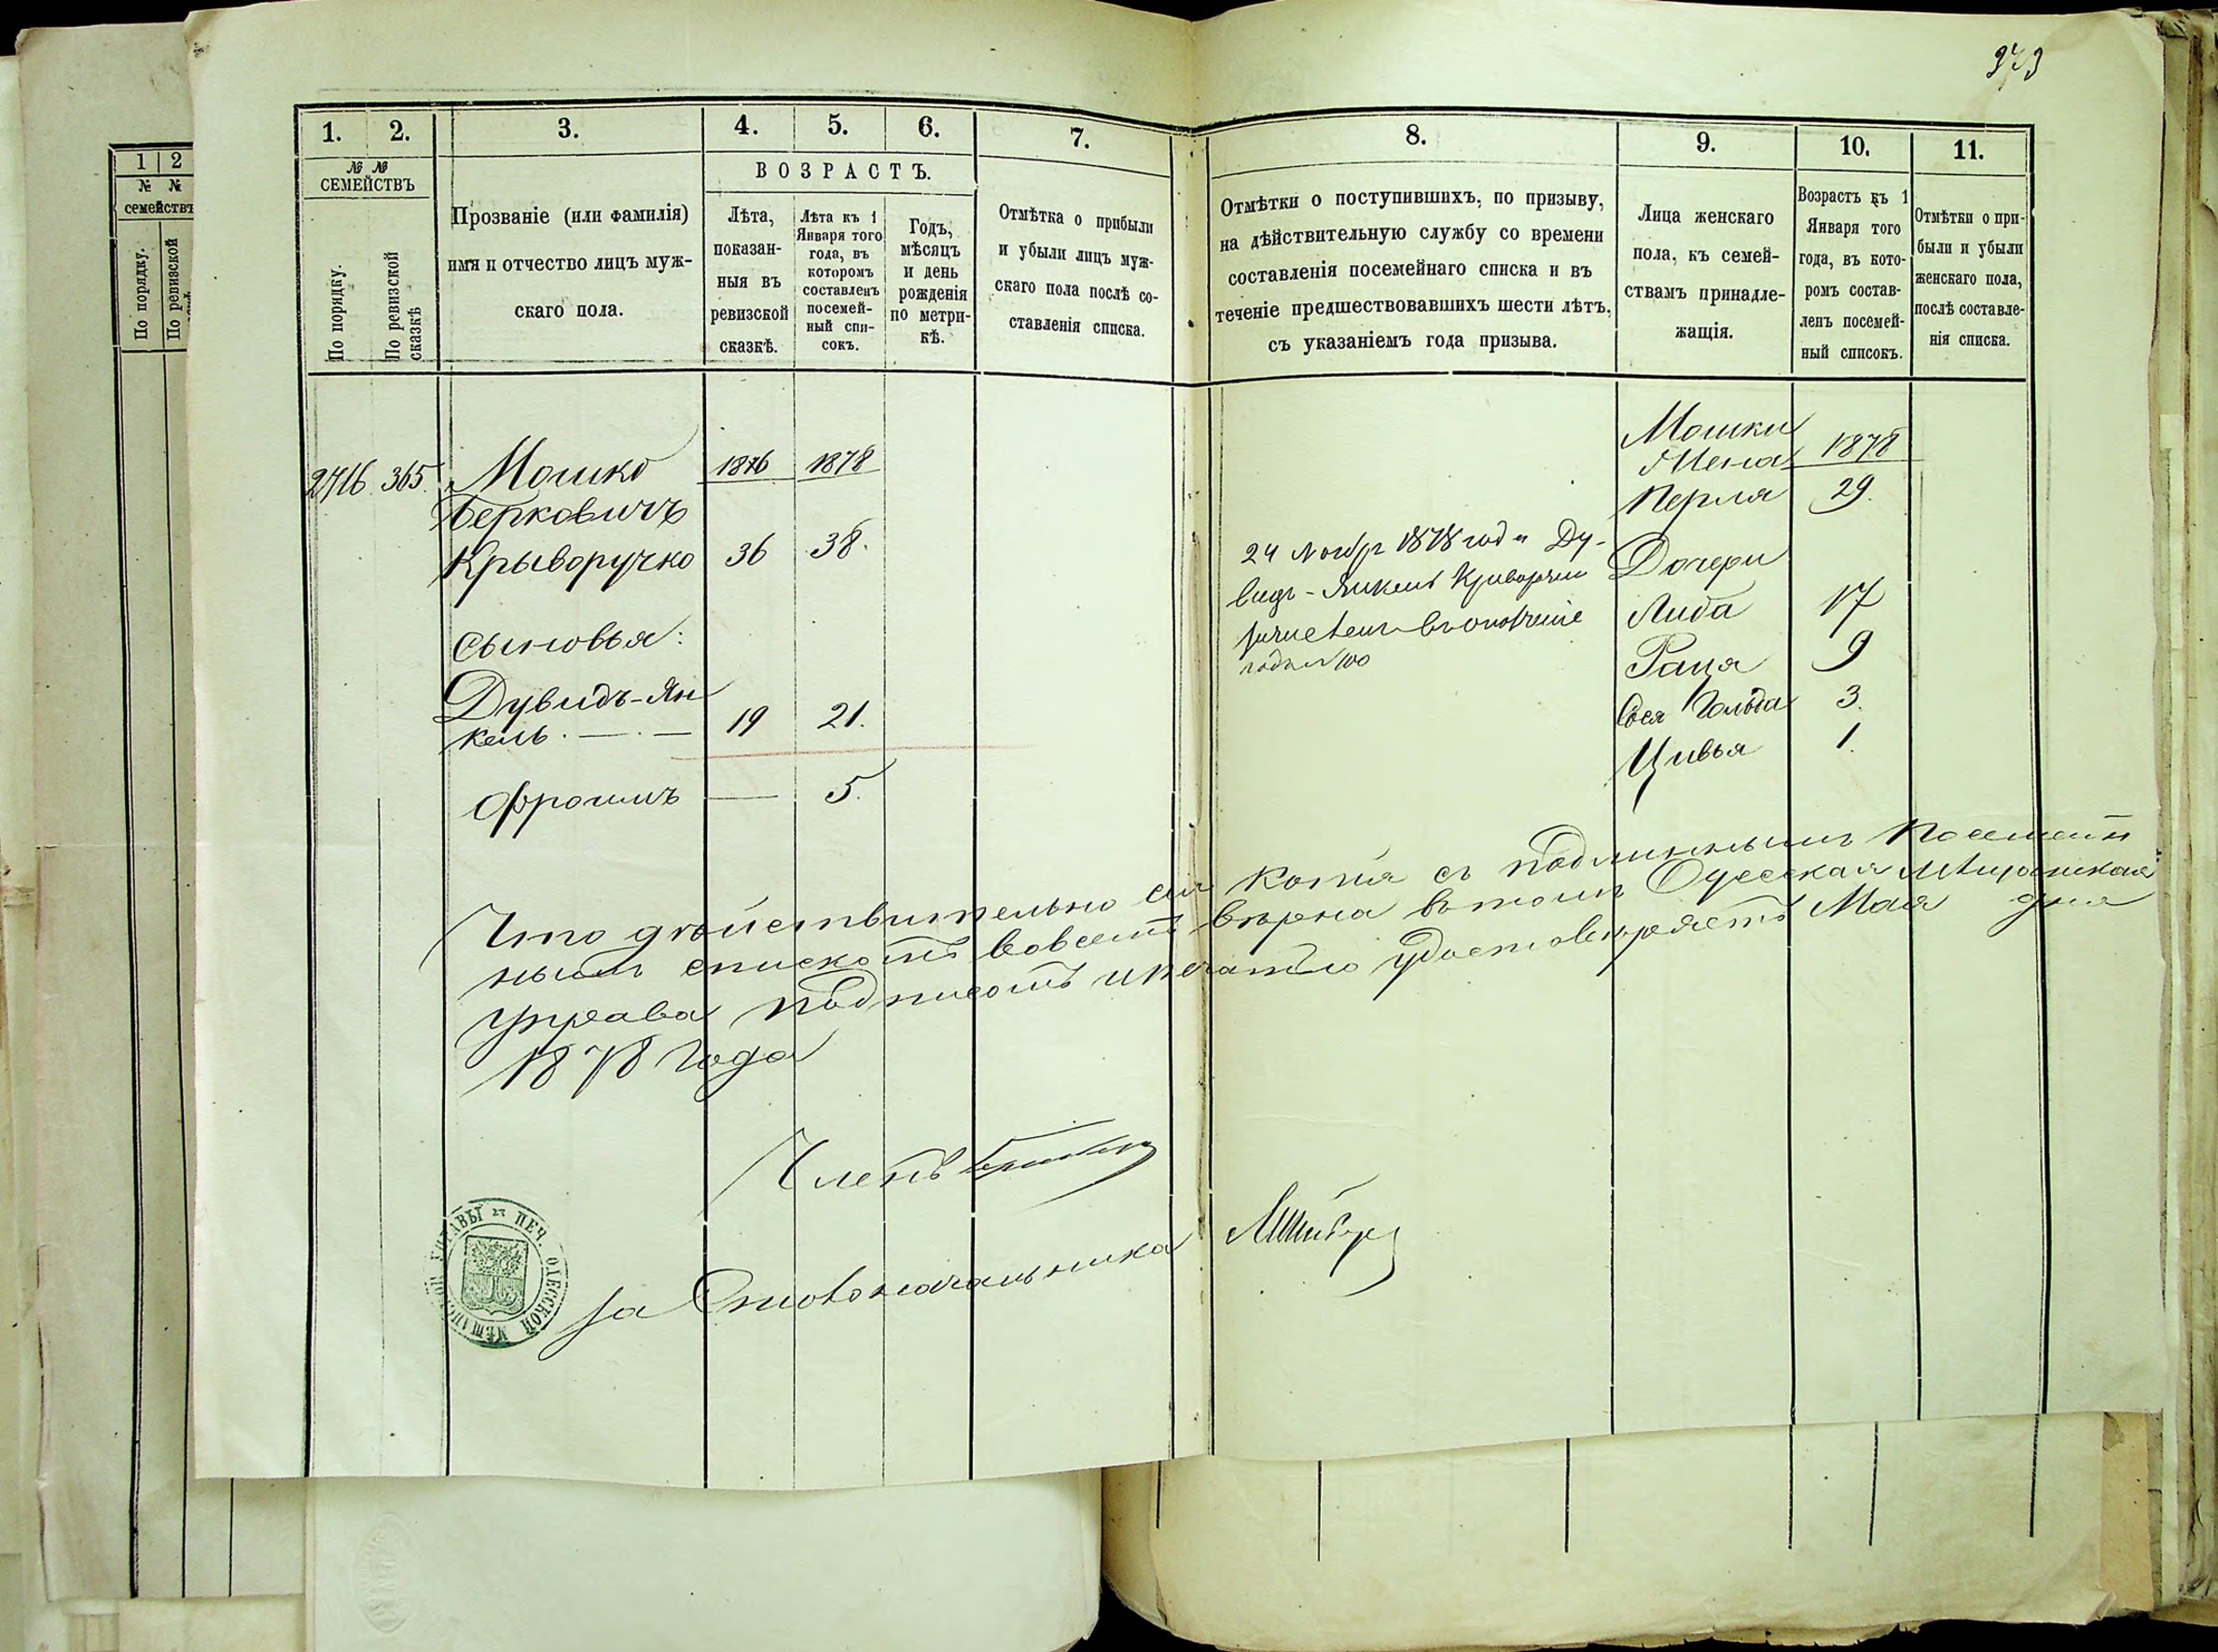 373
1 2
№ №
семействъ
По порядку.
По ревизской
1. 2. 3. 4. 5. 6. 7. 8. 9. 10. 11.
№ №
СЕМЕЙСТВЪ
По порядку.
По ревизской
сказкѣ
Прозваніе (или фамилія)
имя и отчество лицъ муж-
скаго пола.
ВОЗРАСТЪ.
Лѣта,
показан-
ныя въ
ревизской
сказкѣ.
Лѣта къ 1
Января того
года, въ
которомъ
составленъ
посемей-
ный спи-
сокъ.
Годъ,
мѣсяцъ
и день
рожденія
по метри-
кѣ.
Отмѣтка о прибыли
и убыли лицъ муж-
скаго пола послѣ со-
ставленія списка.
Отмѣтки о поступившихъ, по призыву,
на дѣйствительную службу со времени
составленія посемейнаго списка и въ
теченіе предшествовавшихъ шести лѣтъ,
съ указаніемъ года призыва.
Лица женскаго
пола, къ семей-
ствамъ принадле-
жащія.
Возрастъ къ 1
Января того
года, въ кото-
ромъ состав-
ленъ посемей-
ный списокъ.
Отмѣтки о при-
были и убыли
женскаго пола,
послѣ составле-
нія списка.
2716 365 Мошко 1876 1878
Берковичъ
Крыворучко 36 38.
Сыновья:
Дувидъ-Ян
кель. 19 21.
Фроимъ — 5.
24 1878 года Ду-
видъ-Янкель
года № 100
Мошки
Жена 1878
Перля 29.
Дочери
Либа 17
Рапя 9
Сося Гольда 3.
Цивья 1.
Что дѣйствительно сія копія съ подлиннымъ посемей
нымъ спискомъ во всемъ вѣрна въ томъ Одесская Мѣщанская
Управа подписомъ и печатью удостовѣряетъ Мая дня
1878 года
Членъ
За Столоначальника
ПЕЧ. ОДЕССКОЙ МѢЩАНСКОЙ УПРАВЫ